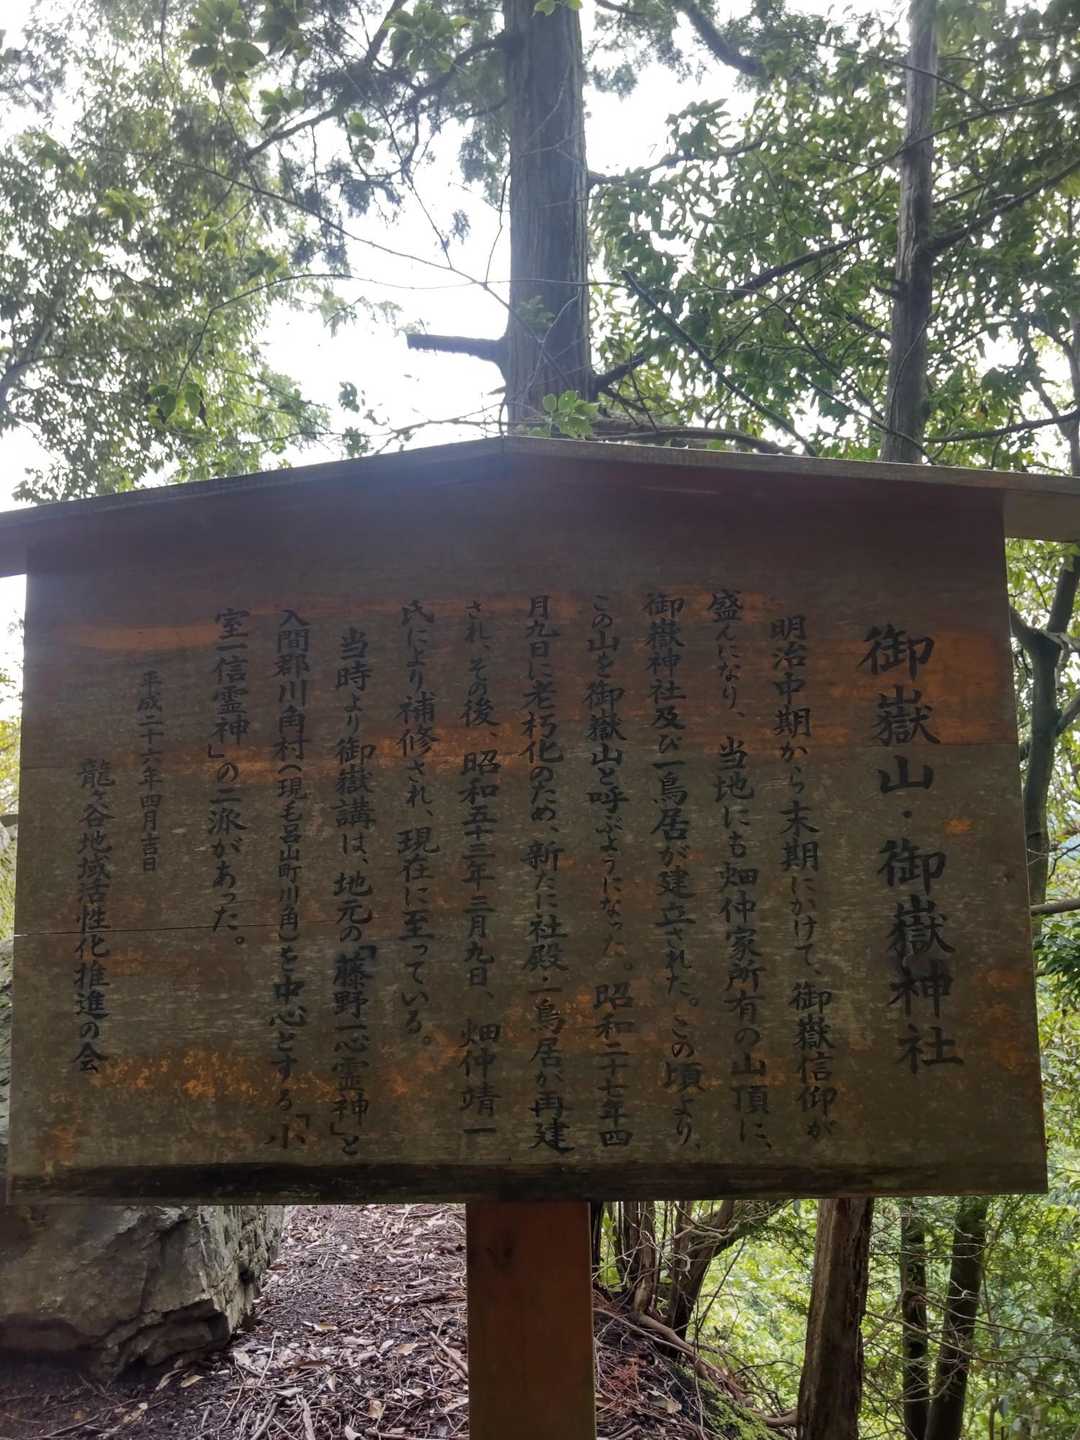 御嶽山・御嶽神社
明治中期から末期にかけて、御嶽信仰が
盛んになり、当地にも畑仲家所有の山頂に、
御嶽神社及び一鳥居が建立された。この頃より、
この山を御嶽山と呼ぶようになった。昭和二十七年四
月九日に老朽化のため、新たに社殿・一鳥居が再建
され、その後、昭和五十三年三月九日、畑仲靖一
氏により補修され、現在に至っている。
当時より御嶽講は、地元の「藤野一心霊神」と
入間郡川角村(現毛呂山町川角)を中心とする「小
室一信霊神」の二派があった。
平成二十六年四月吉日
龍ヶ谷地域活性化推進の会